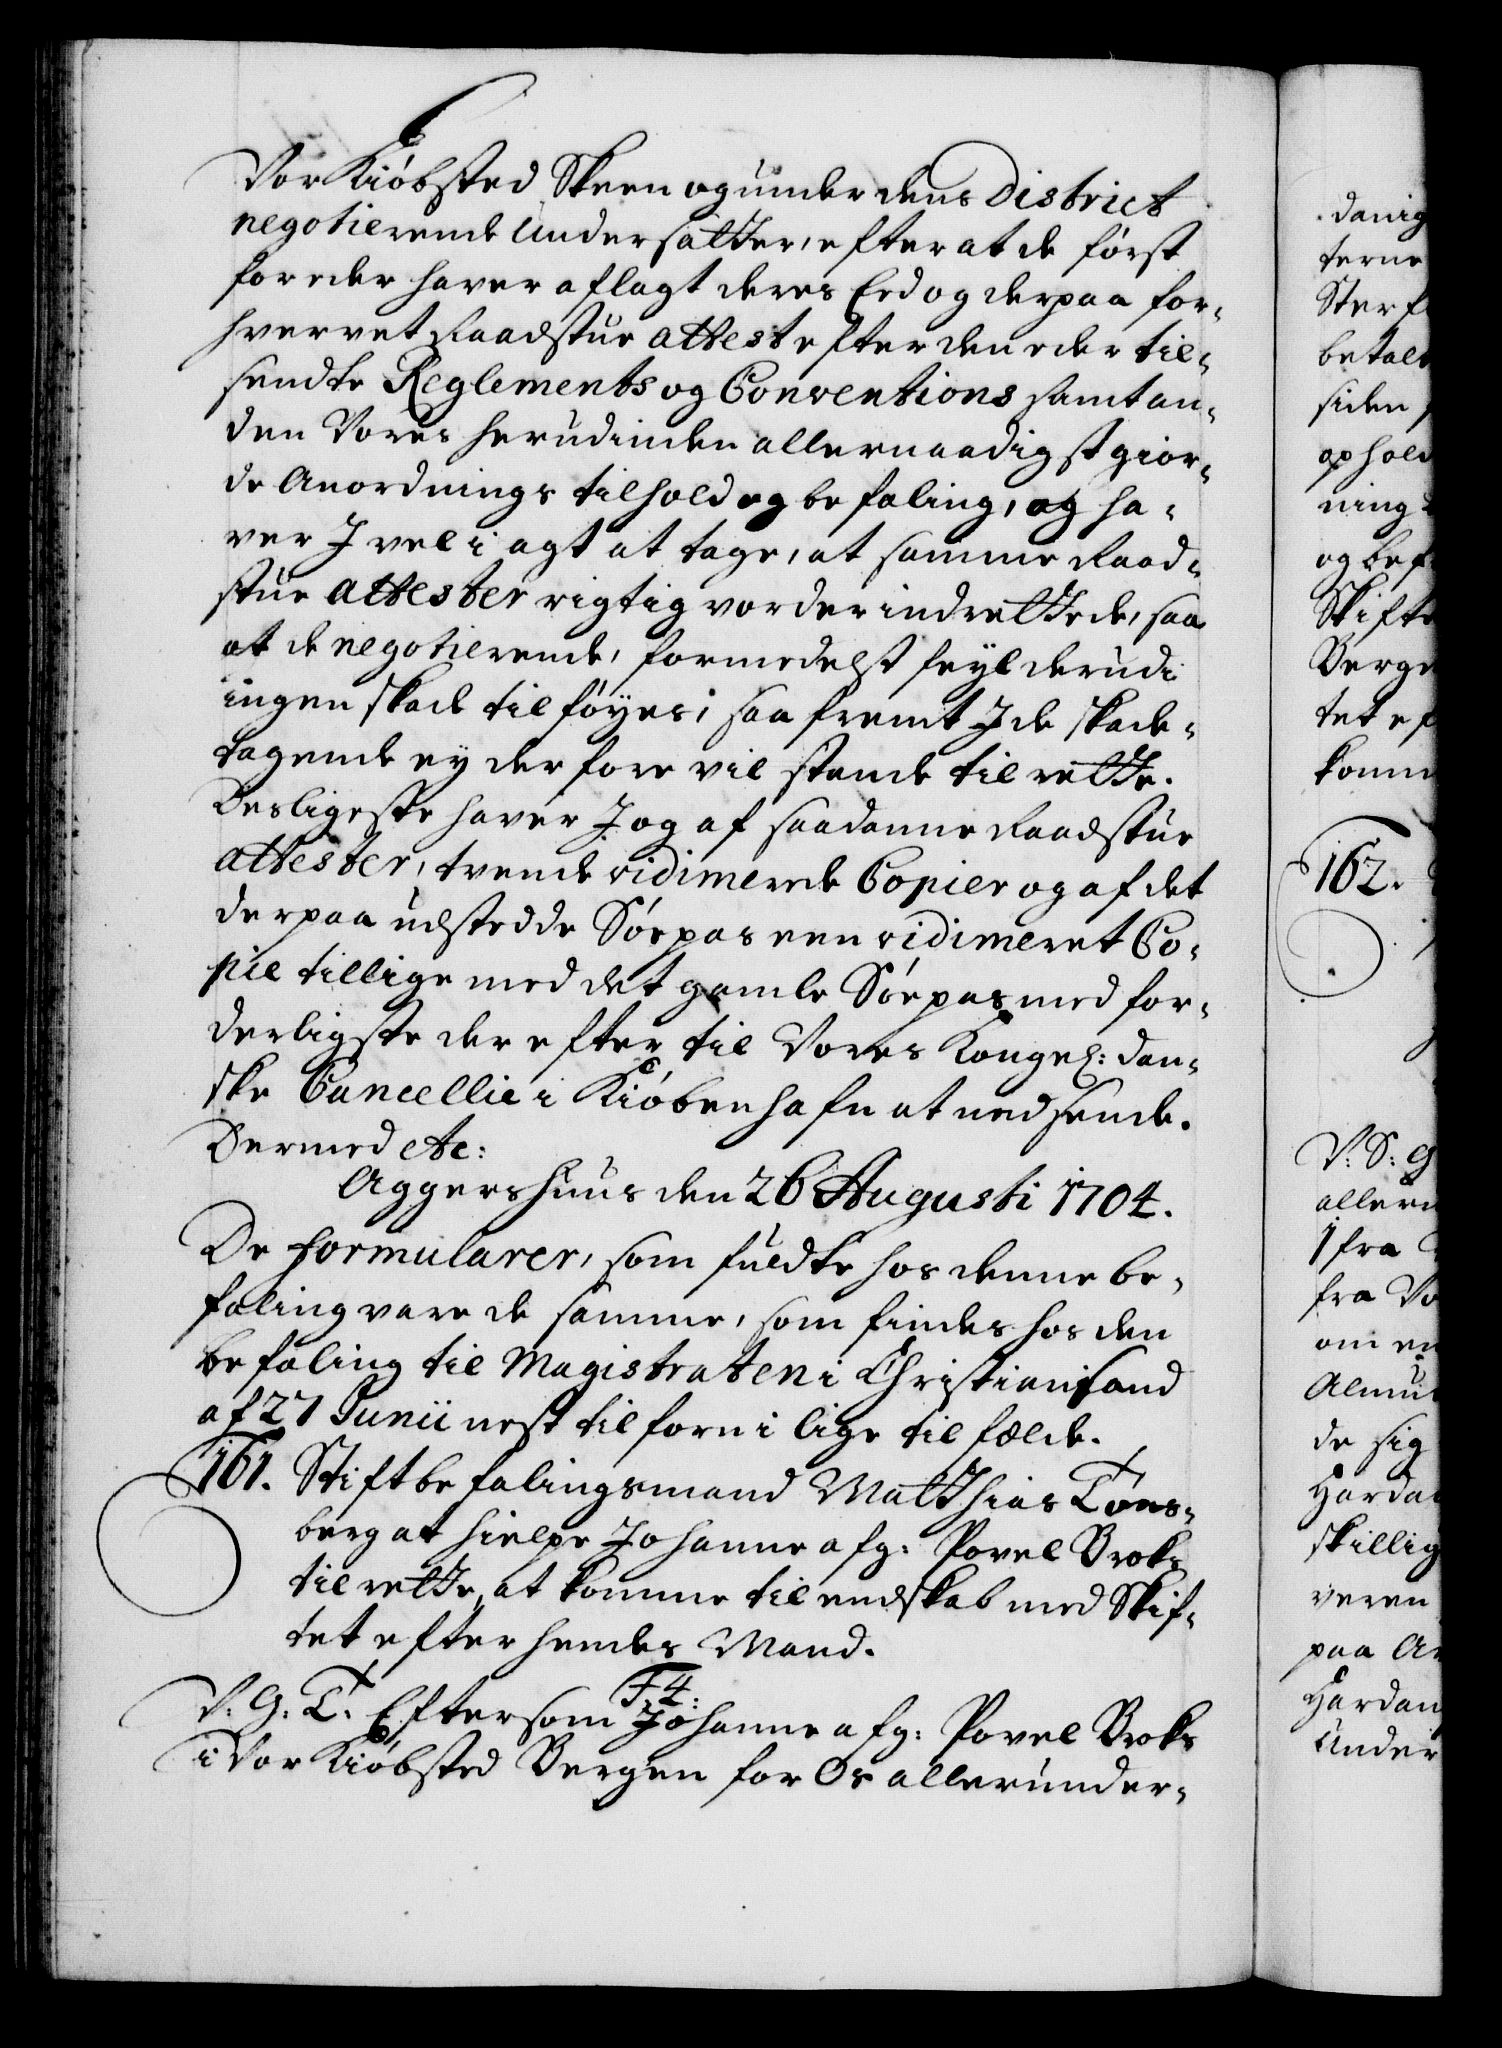 Vor Kiöbsted Skeen og under dens District
negotierende Undersatter, efter at de först
for eder haver aflagt deres Eed og derpaa for-
hvervet Raadstue attest efter den eder til-
sendte Reglements og Conventions samt an-
den Vores herudinden allernaadigst gior-
de Anordnings tilhold og befaling, og ha-
ver I vel i agt at tage, at samme Raad-
stue attester rigtig vorder indrettede, saa
at de negotierende, formedelst feyl derudi
ingen skade tilföyes, saa fremt I de skade-
tagende ey derfore vil stande til rette.
Desligeste haver I og af saadanne Raadstue
attester, tvende vidimerede Copier og af det
derpaa udstedde Söepas een vidimeret Co-
pie tillige med det gamle Söepas med for-
derligste der efter til Vores Kongel: dan-
ske Cancellie i Kiöbenhafn at nedsende.
Dermed etc:
Aggershuus den 26 Augusti 1704.
De formularer, som fuldte hos denne be-
faling vare de samme, som findes hos den
befaling til Magistraten i Christiansand
af 27 Junii nest tilforn i lige tilfælde.
161. Stiftbefalingsmand Matthias Tons-
berg at hielpe Johanne afg: Povel Broks
til rette, at komme til endskab med Skif-
tet efter hendes Mand.
F4:
V. G. T. Eftersom Johanne afg: Povel Broks
i Vor Kiöbsted Bergen for Os allerunder-
danig
terne
betale
siden
ophold
ning
og bef
Skifte
Berge
tet ef
komm
162.
V: S: G
allern
1 fra
fra Vo
om en
Almu
de sig
Harda
skillig
veren
paa A
Hardan
Under